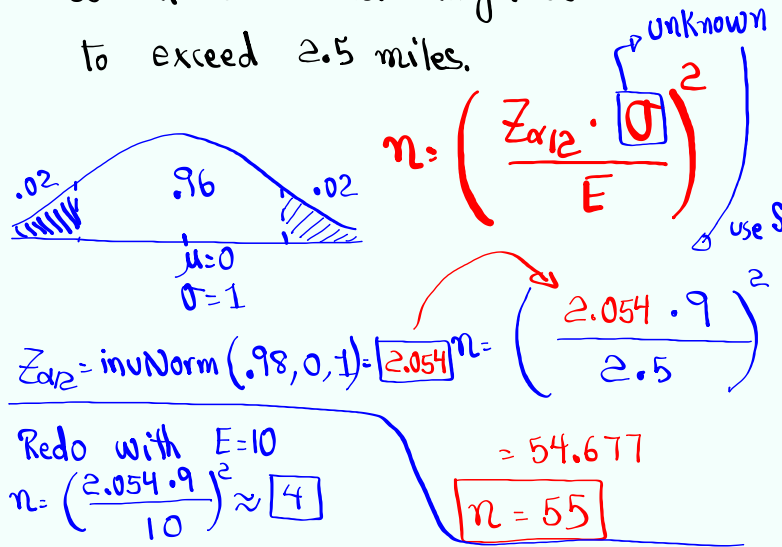 to exceed 2.5 miles.
unknown
n = ( Zα/2 · σ / E )²
.02 .96 .02
μ=0
σ=1
use S
Zα/2 = invNorm(.98, 0, 1) = 2.054
n = ( 2.054 · 9 / 2.5 )²
= 54.677
n = 55
Redo with E=10
n = ( 2.054 · 9 / 10 )² ≈ 4